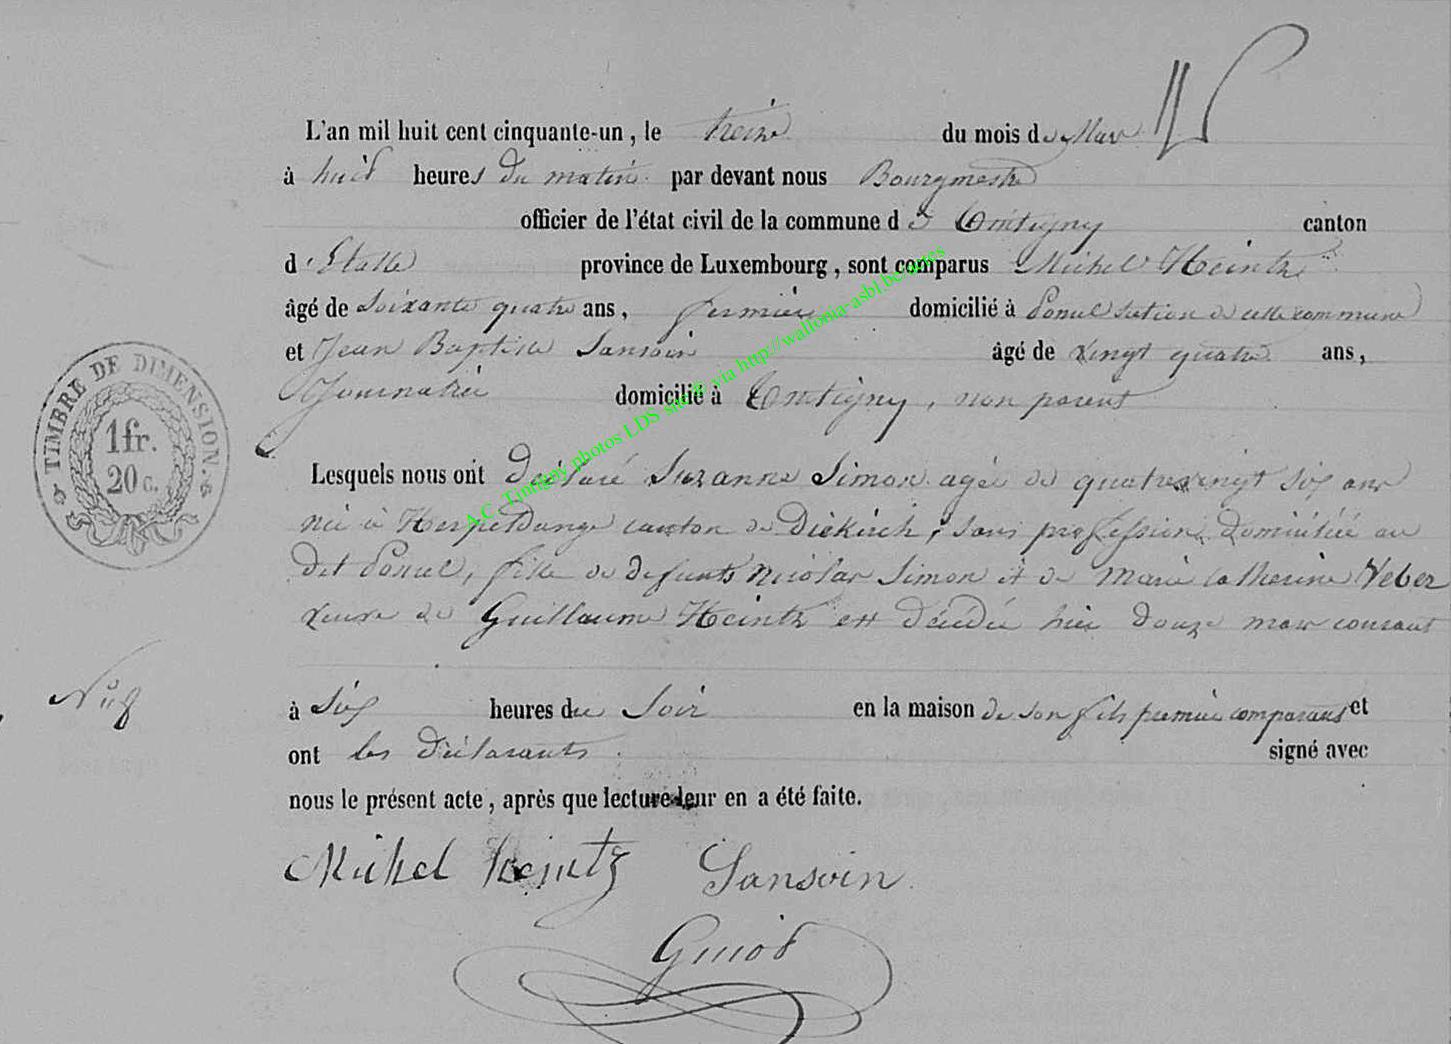 L'an mil huit cent cinquante-un, le treize du mois de Mars
à huit heures du matin par devant nous Bourgmestre
officier de l'état civil de la commune de Tintigny canton
d'Etalle province de Luxembourg, sont comparus Michel Heintz
âgé de soixante quatre ans, fermier domicilié à Poncel section de cette commune
et Jean Baptiste Sansoin âgé de vingt quatre ans,
Journalier domicilié à Tintigny, non parent
TIMBRE DE DIMENSION.
1fr.
20 c.
Lesquels nous ont déclaré Suzanne Simon agée de quatrevingt six ans
née à Herpeldange canton de Diekirch, sans profession, domiciliée au
dit Poncel, fille de defunts Nicolas Simon et de Marie Catherine Veber
veuve de Guillaume Heintz est décédée hier douze mars courant
à six heures du soir en la maison de son fils premier comparant et
ont les déclarants signé avec
nous le présent acte, après que lecture leur en a été faite.
Michel Heintz Sansoin
Guiot
A.C. Tintigny photos LDS site © via http://wallonia-asbl.be/actes